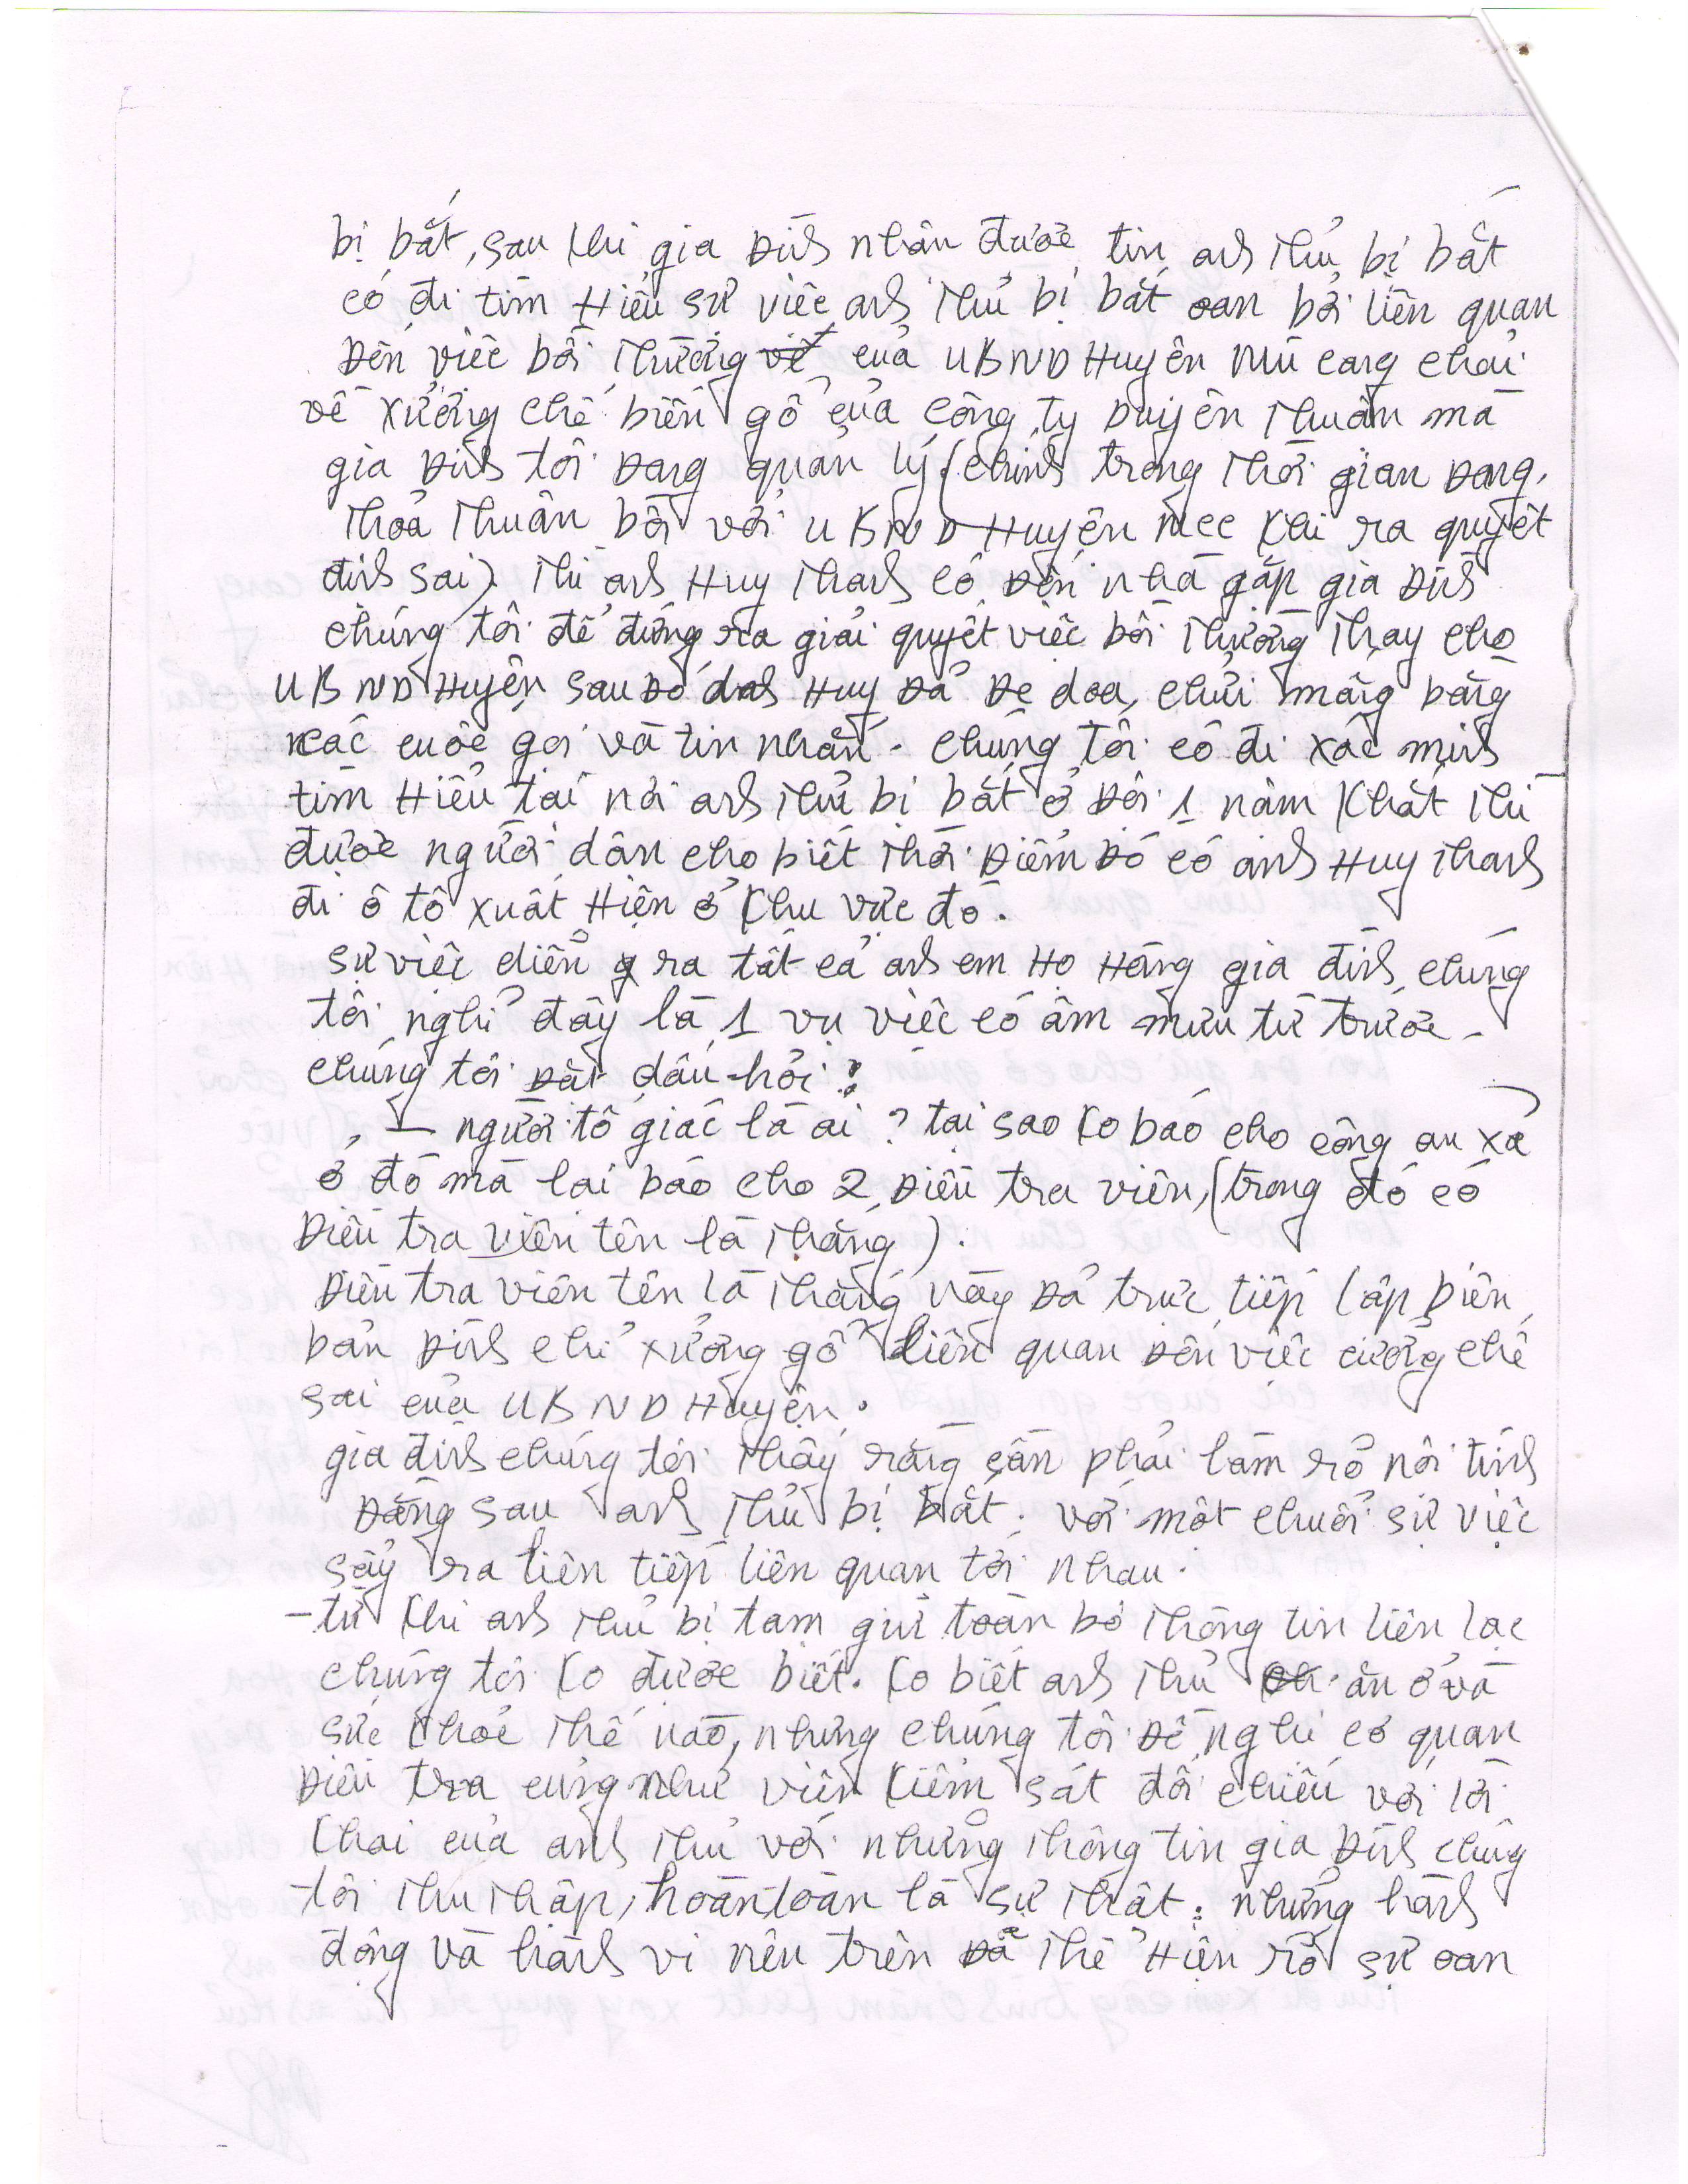 bị bắt, sau khi gia Đình nhận được tin anh Thử bị bắt
có đi tìm Hiểu sự việc anh Thử bị bắt oan bởi liên quan
Đến việc bồi Thường của UBND Huyện Mù cang chải
về xưởng chế biến gỗ của công ty Duyên Thuần mà
gia Đình tôi Đang quản lý (chính trong Thời gian Đang
Thỏa Thuận bồi với UBND Huyện MCC khi ra quyết
định sai) Thì anh Huy Thanh có Đến nhà gặp gia Đình
chúng tôi để đứng ra giải quyết việc bồi Thường Thay cho
UBND Huyện sau Đó anh Huy Đã Đe dọa, chửi mắng bằng
các cuộc gọi và tin nhắn. chúng tôi có đi xác minh
tìm Hiểu tại nơi anh Thử bị bắt ở Đội 1 nậm Khắt Thì
được người dân cho biết Thời Điểm Đó có anh Huy Thanh
đi ô tô xuất Hiện ở khu vực đó.
sự việc diễn ra tất cả anh em Họ Hàng gia đình chúng
tôi nghĩ đây là 1 vụ việc có âm mưu từ trước.
chúng tôi Đặt dấu hỏi?
1 người tố giác là ai? tại sao ko báo cho công an xã
ở đó mà lại báo cho 2 Điều tra viên, (trong đó có
Điều tra viên tên là Thắng).
Điều tra viên tên là Thắng này Đã trực tiếp lập biên
bản Đình chỉ xưởng gỗ liên quan Đến việc cưỡng chế
sai của UBND Huyện.
gia đình chúng tôi Thấy rằng cần phải làm rõ nội tình
Đằng sau anh Thử bị bắt. với một chuỗi sự việc
sảy ra liên tiếp liên quan tới nhau.
- từ khi anh Thử bị tạm giữ toàn bộ Thông tin liên lạc
chúng tôi ko được biết. ko biết anh Thử ăn ở và
sức khỏe Thế nào, nhưng chúng tôi Đề nghị cơ quan
Điều tra cũng như viện kiểm sát đối chiếu với lời
khai của anh Thử với những Thông tin gia Đình chúng
tôi Thu Thập, hoàn toàn là sự Thật. những hành
động và hành vi nêu trên Đã Thể Hiện rõ sự oan